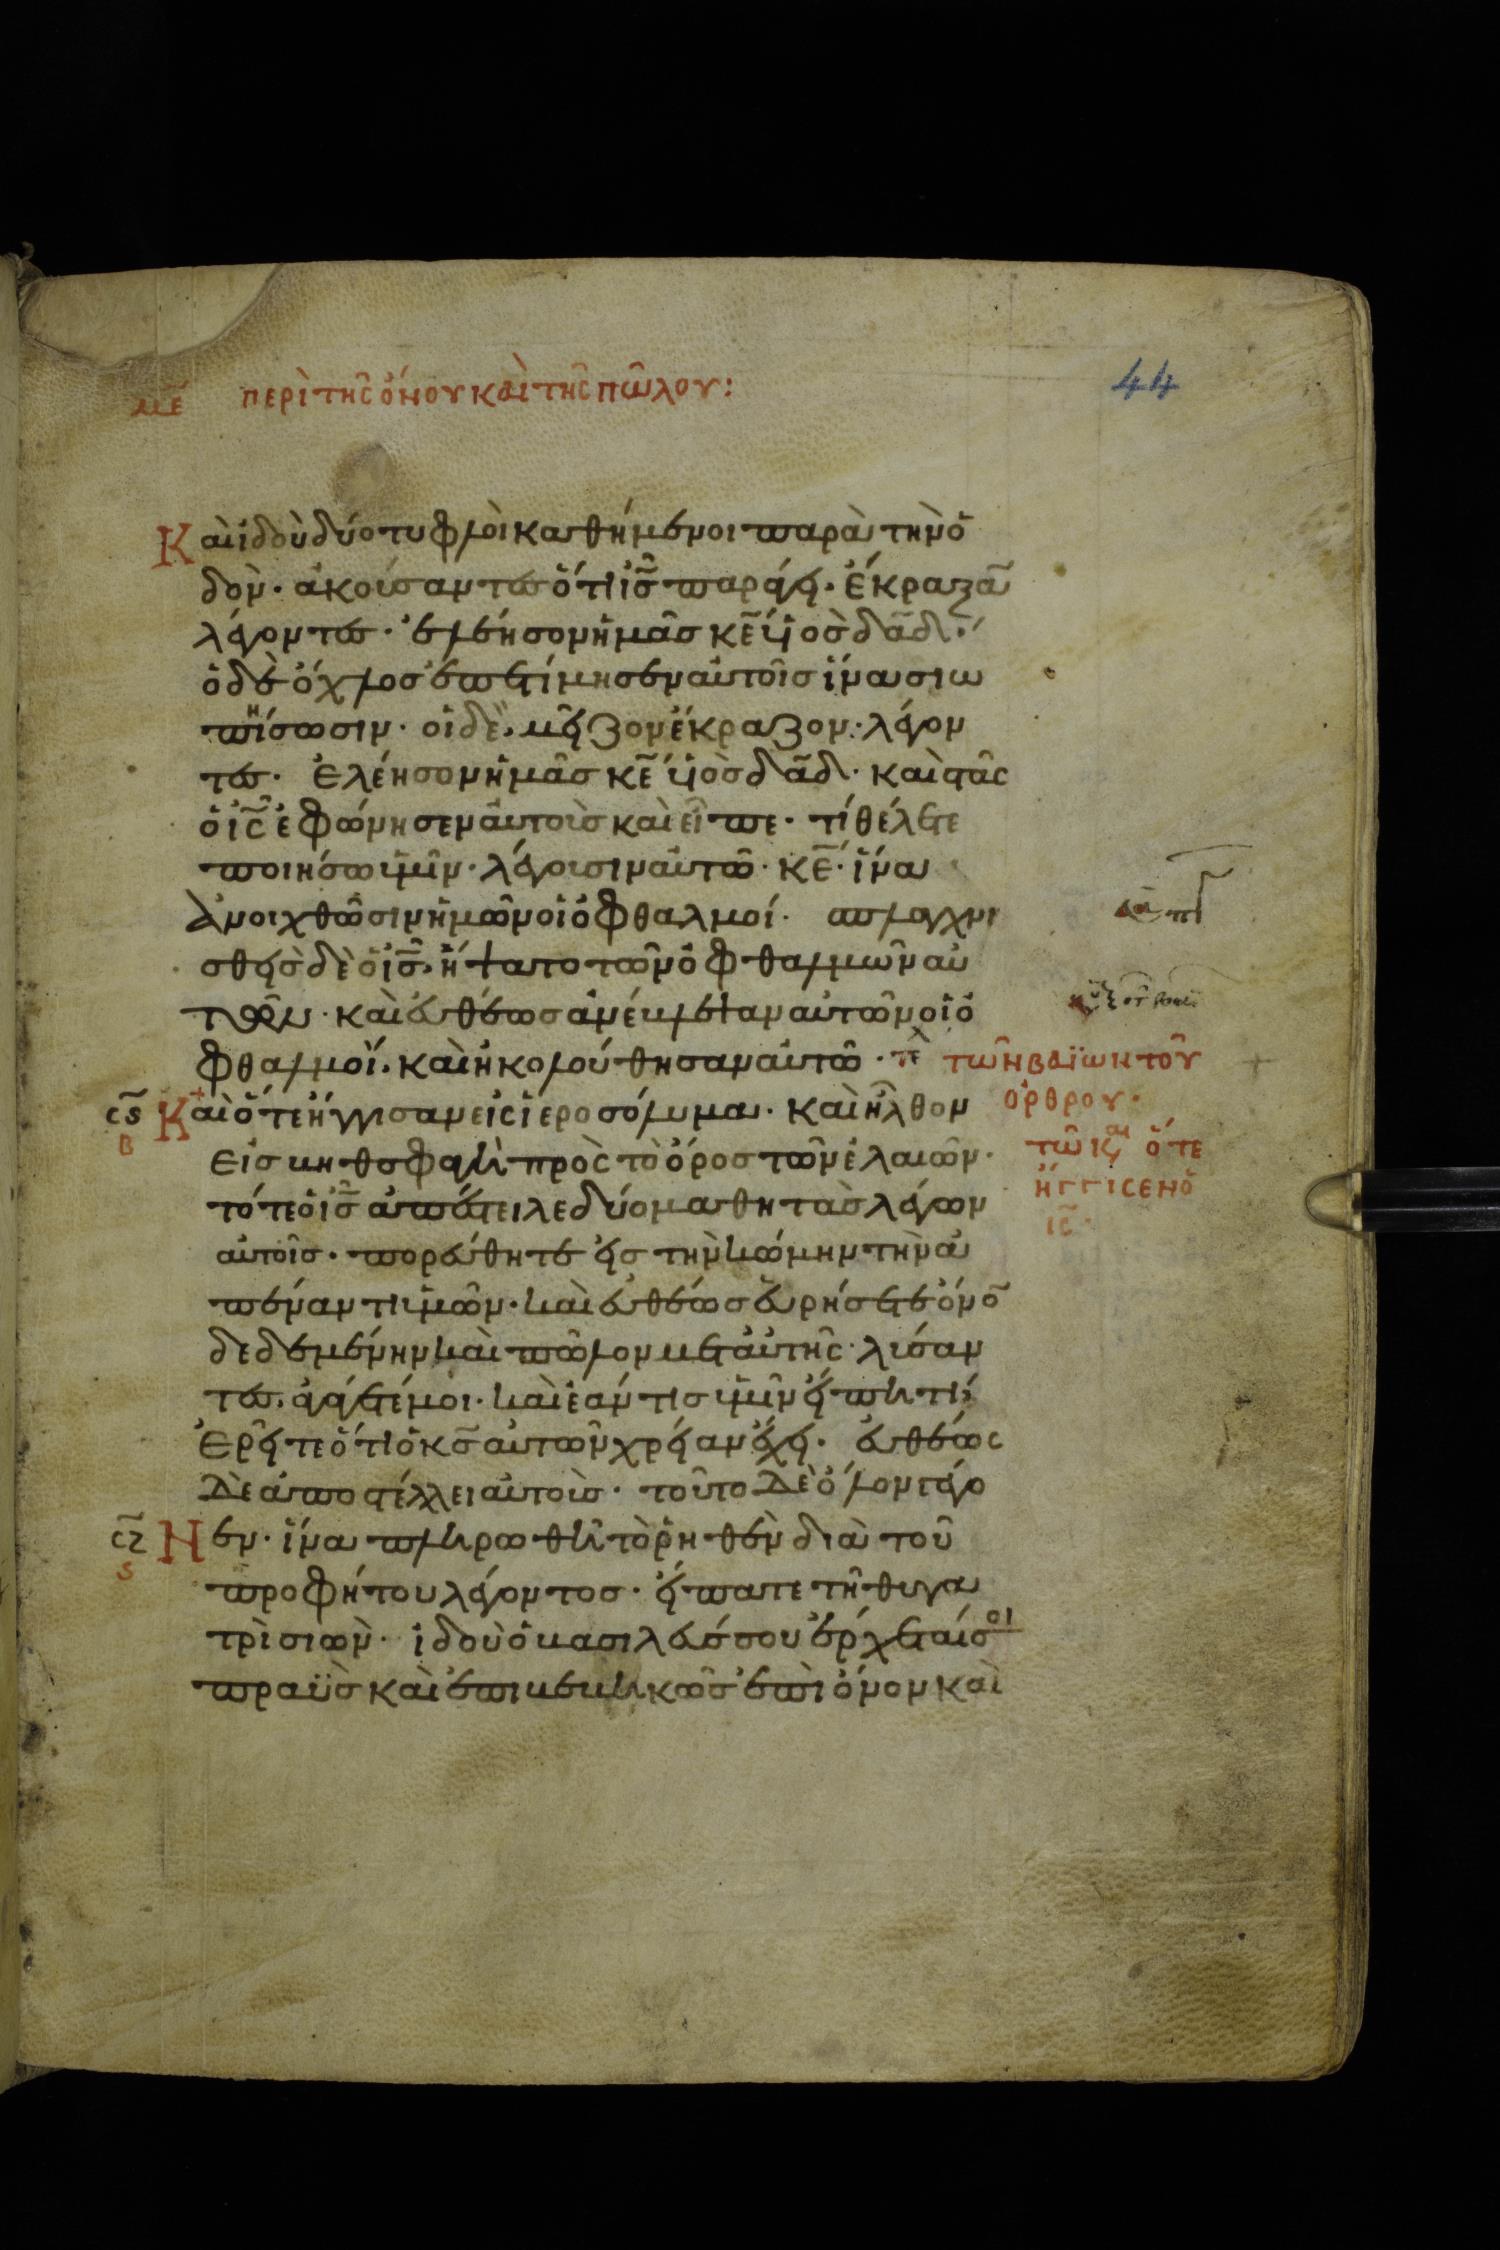 με περὶ τῆς ὄνου καὶ τῆς πώλου:
44
Καὶ ἰδοὺ δύο τυφλοὶ καθήμενοι παρὰ τὴν ὁ
δὸν· ἀκούσαντες ὅτι ις̅ παράγει· ἔκραξα̅
λέγοντες· ἐλέησον ἡμᾶς κε̅ υἱὸς δα̅δ·
ὁ δὲ ὄχλος ἐπετίμησεν αὐτοῖς ἵνα σιω
πήσωσιν· οἱ δὲ, μεῖζον ἔκραζον· λέγον
τες· ἐλέησον ἡμᾶς κε̅ υἱὸς δα̅δ· καὶ στὰς
ὁ ις̅ ἐφώνησεν αὐτοὺς καὶ εἶπε· τί θέλετε
ποιήσω ὑμῖν· λέγουσιν αὐτῶ· κε̅· ἵνα
ἀνοιχθῶσιν ἡμῶν οἱ ὀφθαλμοί· σπλαγχνι
σθεὶς δὲ ὁ ις̅, ἥψατο τῶν ὀφθαλμῶν αὐ
τῶν· καὶ εὐθέως ἀνέβλεψαν αὐτῶν οἱ ὀ
φθαλμοὶ, καὶ ἠκολούθησαν αὐτῶ· τέλ τῶν βαΐων τοῦ
ϲϛ Καὶ ὅτε ἤγγισαν εἰς ἱεροσόλυμα· καὶ ἦλθον ὄρθρου·
β εἰς βηθσφαγὴ πρὸς τὸ ὄρος τῶν ἐλαιῶν· τῶ κ, ὅτε
τότε ὁ ις̅ ἀπέστειλε δύο μαθητὰς λέγων ἤγγισεν ὁ
αὐτοῖς· πορεύθητε εἰς τὴν κώμην τὴν ἀ ις̅·
πέναντι ὑμῶν· καὶ εὐθέως εὑρήσετε ὄνο̅
δεδεμένην καὶ πῶλον μετ' αὐτῆς· λύσαν
τες, ἀγάγετέ μοι· καὶ ἐάν τις ὑμῖν εἴπη τί,
ἐρεῖτε ὅτι ὁ κς̅ αὐτῶν χρείαν ἔχει· εὐθέως
δὲ ἀποστέλλει αὐτοὺς· τοῦτο δὲ ὅλον γέγο
ϲζ Νεν· ἵνα πληρωθῆ τὸ ῥηθὲν διὰ τοῦ
ϛ προφήτου λέγοντος· εἴπατε τῆ θυγα
τρὶ σιὼν· ἰδοὺ ὁ βασιλεύς σου ἔρχεταί σοι
πραΰς καὶ ἐπιβεβηκὼς ἐπὶ ὄνον καὶ